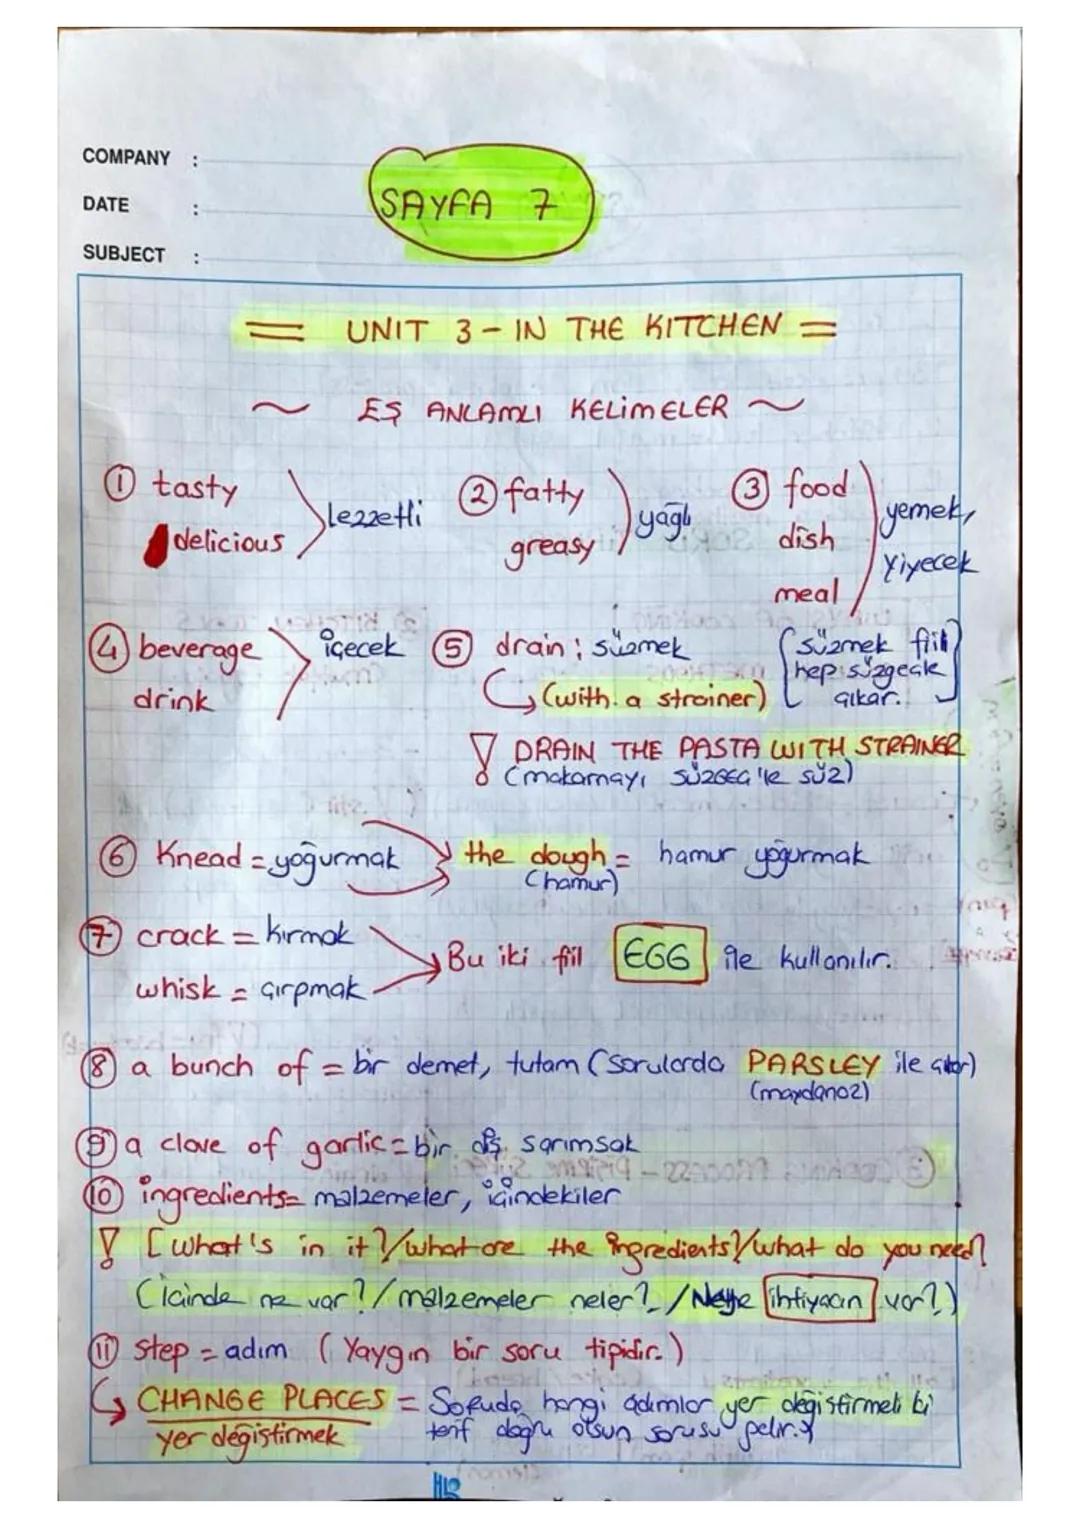 COMPANY :
DATE :
SUBJECT :
SAYFA 7
= UNIT 3 - IN THE KITCHEN =
~ EŞ ANLAMLI KELİMELER ~
① tasty
delicious
lezzetli
② fatty
greasy
yağlı
③ food
dish
meal
yemek,
yiyecek
④ beverage
drink
içecek
⑤ drain ; süzmek
(with a strainer)
[süzmek fiili
hep süzgeçle
çıkar.]
! DRAIN THE PASTA WITH STRAINER
(makarnayı süzgeç'le süz)
⑥ Knead = yoğurmak
the dough = hamur yoğurmak
(hamur)
⑦ crack = kırmak
whisk = çırpmak
Bu iki fiil EGG ile kullanılır.
⑧ a bunch of = bir demet, tutam (Sorularda PARSLEY ile çıkar)
(maydanoz)
⑨ a clove of garlic = bir diş sarımsak
⑩ ingredients = malzemeler, içindekiler
! [what's in it?/what are the ingredients?/what do you need?
(İçinde ne var?/malzemeler neler?/Neye ihtiyacın var?)
⑪ step = adım (Yaygın bir soru tipidir.)
CHANGE PLACES = Soruda hangi adımlar yer değiştirmeli ki
yer değiştirmek
tarif doğru olsun sorusu gelir.